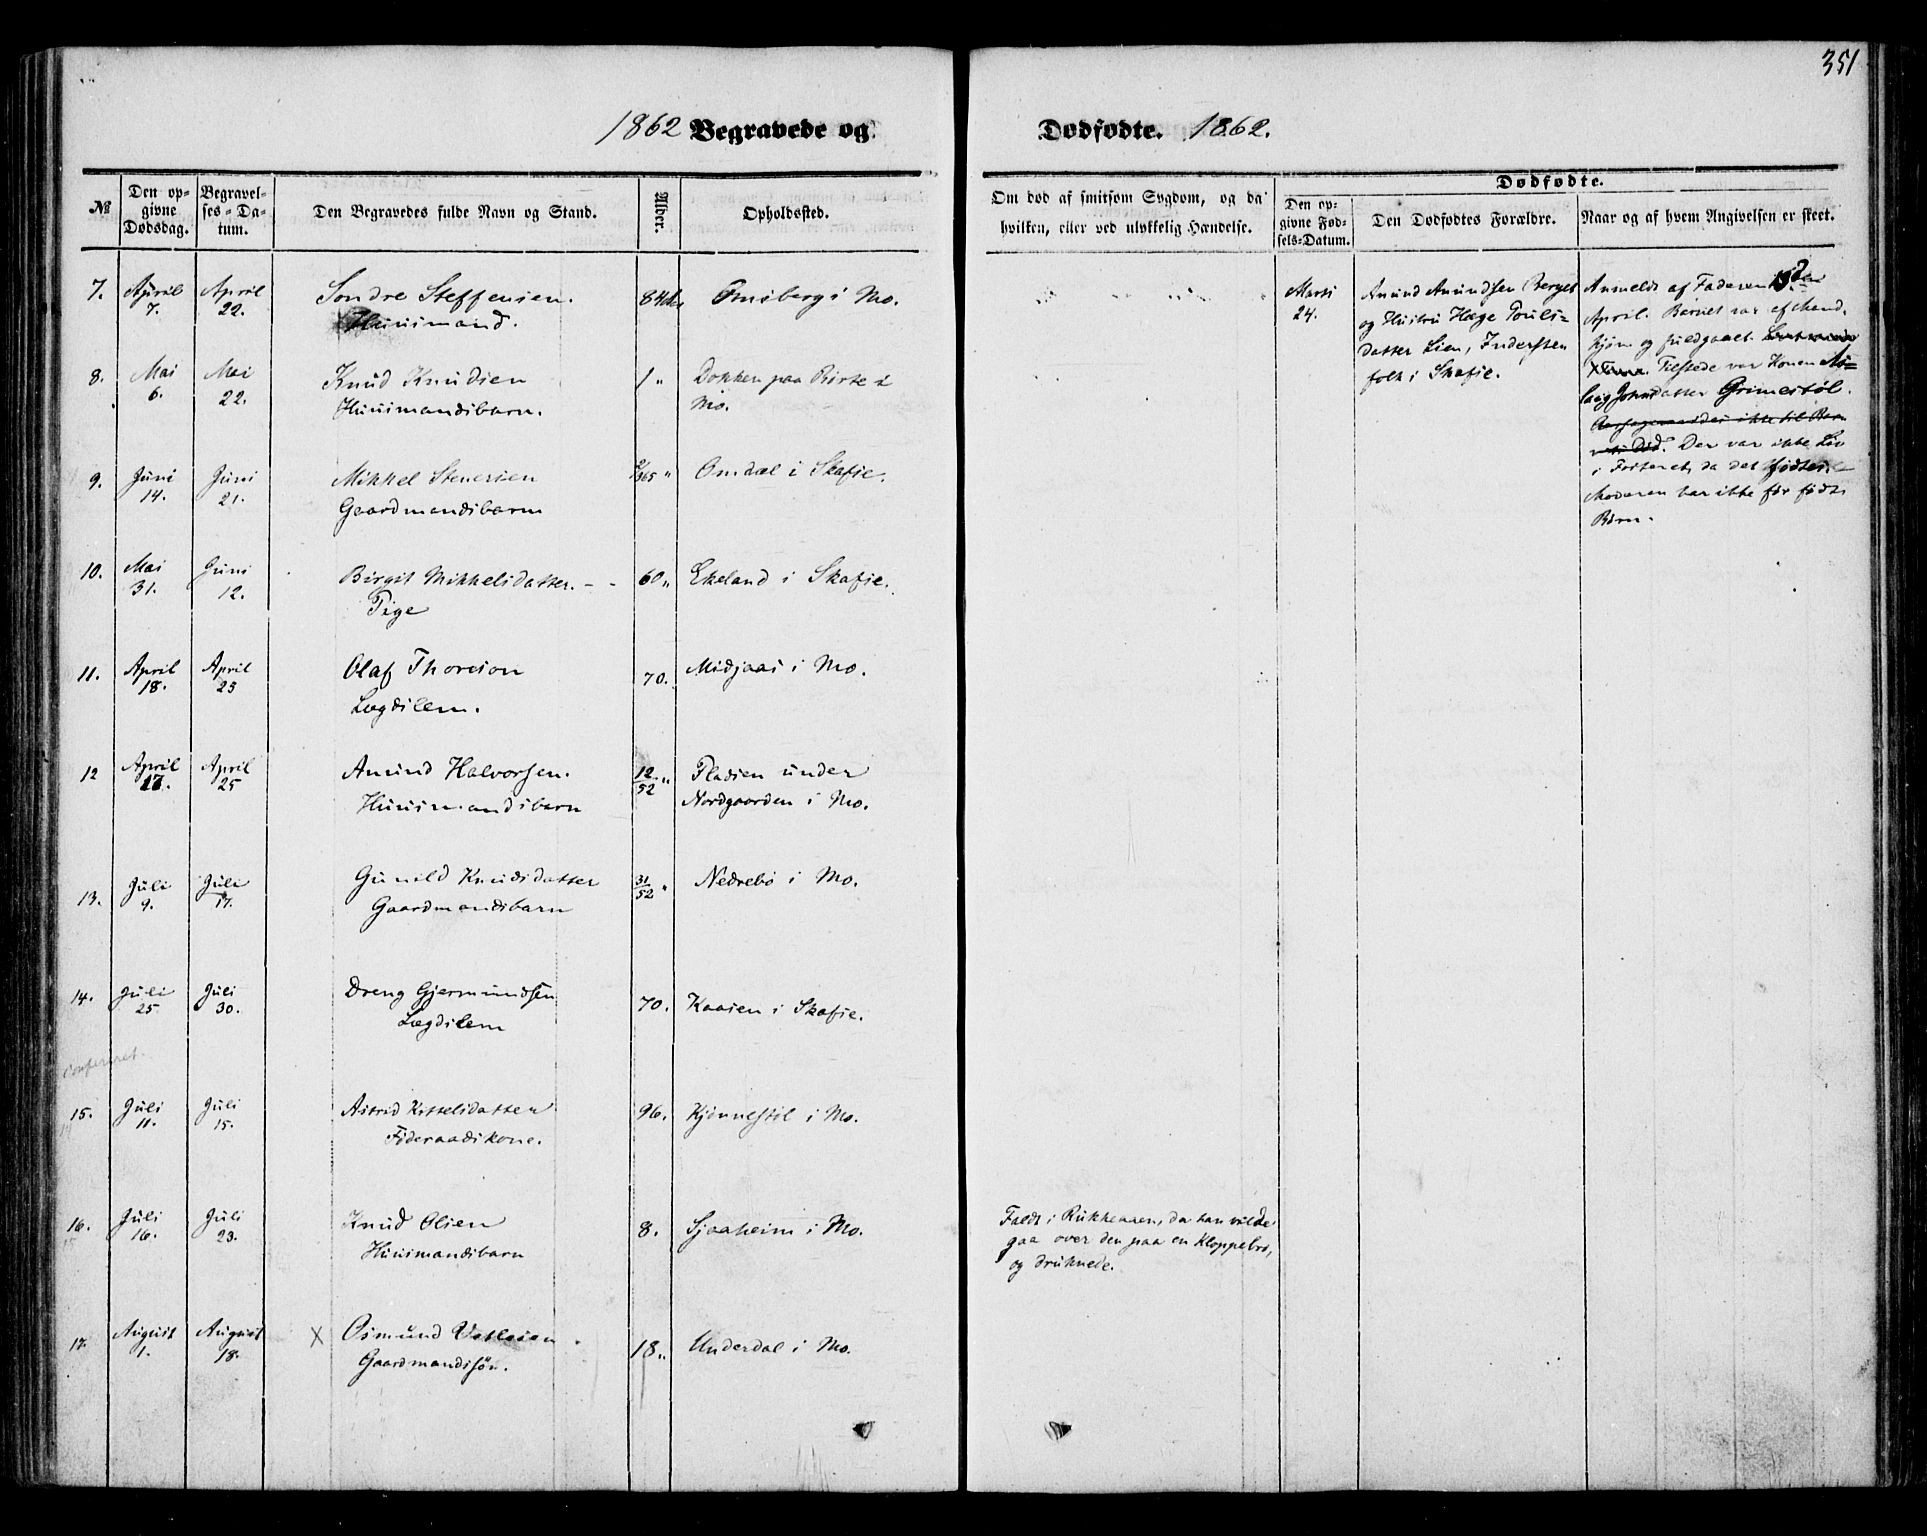 351
1862 Begravede og Dødfødte. 1862.
№
Den op-
givne
Dødsdag.
Begravel-
ses-Da-
tum.
Den Begravedes fulde Navn og Stand.
Alder.
Opholdssted.
Om død af smitsom Sygdom, og da
hvilken, eller ved ulykkelig Hændelse.
Dødfødte.
Den op-
givne Fød-
sels-Datum.
Den Dødfødtes Forældre.
Naar og af hvem Angivelsen er skeet.
7. April 7. April 22. Sondre Steffensen. 84 Omsberg i Mo.
Huusmand.
8. Mai 6. Mai 22. Knud Knudsen 1 " Dokken paa Børte i
Huusmandsbarn. Mo.
9. Juni 14. Juni 21. Mikkel Stenersen 2/365 " Omdal i Skafse.
Gaardmandsbarn
10. Mai 31. Juni 12. Birgit Mikkelsdatter. - - 60 " Ekeland i Skafse.
Pige
11. April 18. April 23 Olaf Thoreson 70. Midjaas i Mo.
Lægdslem.
12 April 17. April 25 Anund Halvorsen. 12/52 " Pladsen under
Huusmandsbarn Nordgaarden i Mo.
13. Juli 9. Juli 17. Gunild Knudsdatter 31/52 " Nedrebø i Mo.
Gaardmandsbarn
14. Juli 25 Juli 30. Dreng Gjermundsen 70. Kaasen i Skafse.
Lægdslem
Confereret.
15. Juli 11. Juli 15. Astrid Kittelsdatter 96. Kjønnestøl i Mo.
Føderaadskone.
16. Juli 16. Juli 23. Knud Olsen 8. Sjaaheim i Mo.
Huusmandsbarn
Faldt i Rukkeaaen, da han vilde
gaa over den paa en Kloppebro,
og druknede.
17. August 1. August 18. X Osmund Vetlesen 18 " Underdal i Mo.
Gaardmandssøn.
Marts
24.
Anund Anundsen Berget
og Hustru Hæge Pouls-
datter Lien, Inderster
folk i Skafse.
Anmeldt af Faderen
April. Barnet var af Mand-
kjøn og fuldgaaet.
Tilstede var Konen Aa-
laug Johnsdatter Grimestøl.
Der var ikke Liv
i Fosteret, da det fødtes.
Moderen har ikke før født
Børn.